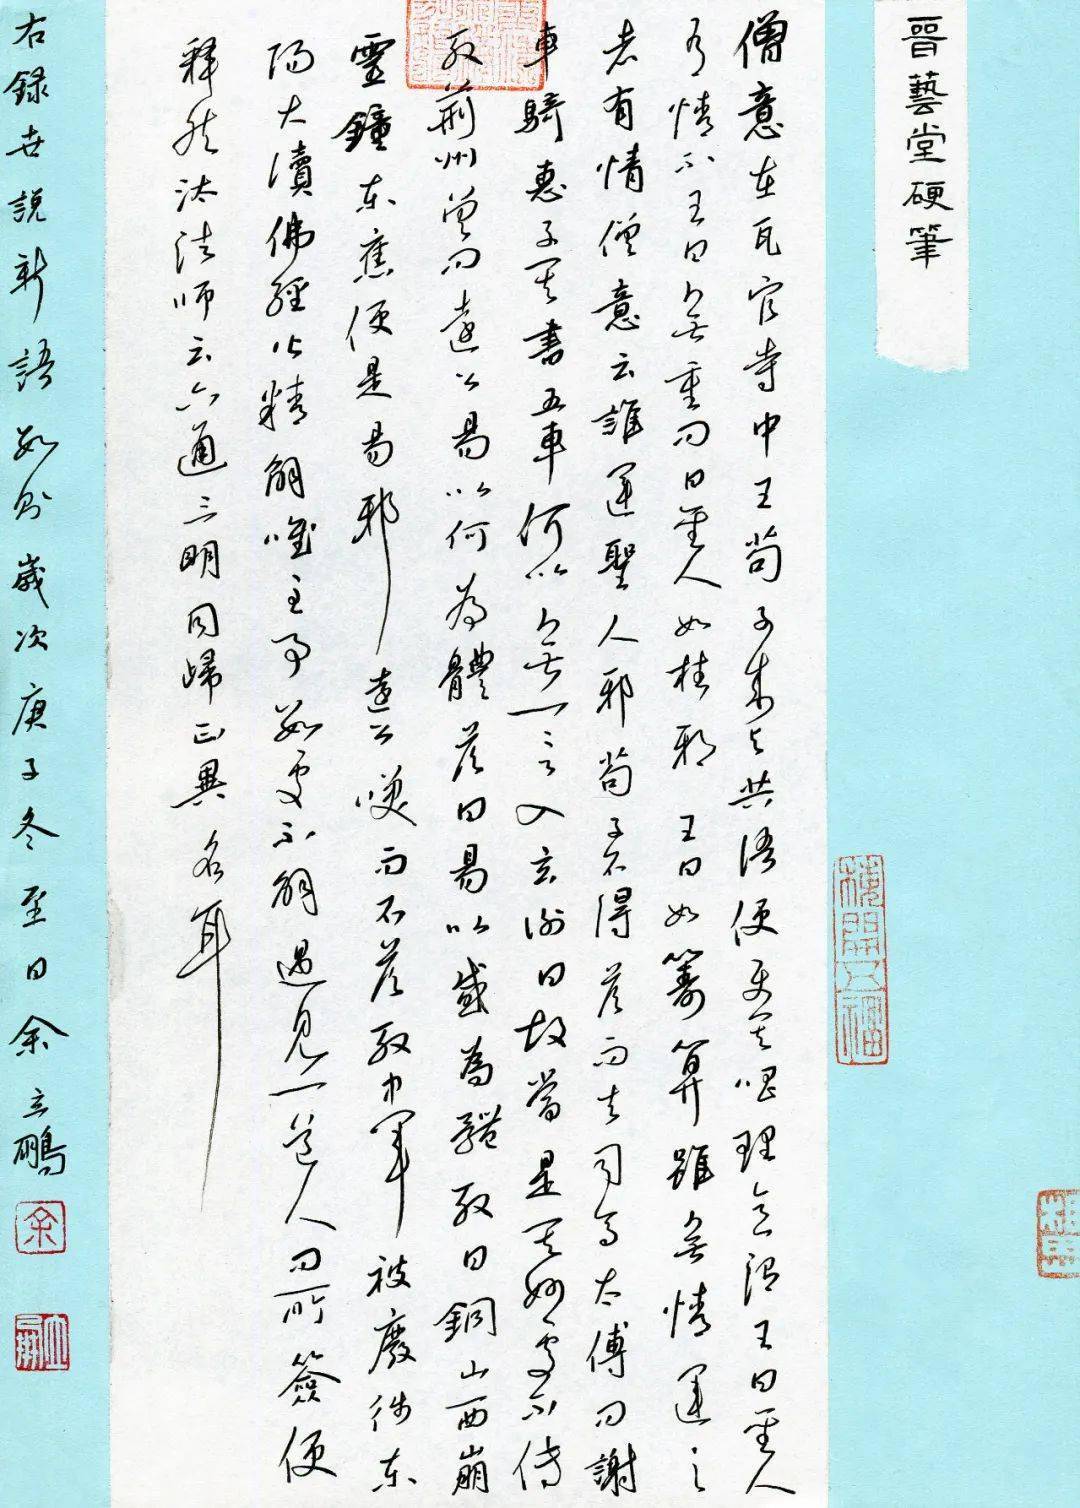 晉藝堂硬筆
僧意在瓦官寺中王苟子來與共語便更其唱理意謂王曰聖人
有情不王曰無重問曰聖人如柱邪王曰如籌算雖無情運之
者有情僧意云誰運聖人邪苟子不得答而去司馬太傅問謝
車騎惠子其書五車何以無一言入玄謝曰故當是其妙處不傳
殷荊州曾問遠公易以何為體答曰易以感為體殷曰銅山西崩
靈鐘東應便是易邪遠公笑而不答殷中軍被廢徙東
陽大讀佛經皆精解唯至事數處不解遇見一道人問所簽便
釋然汰法師云六通三明同歸正異名耳
右錄世說新語數則歲次庚子冬至日余立鵬
余